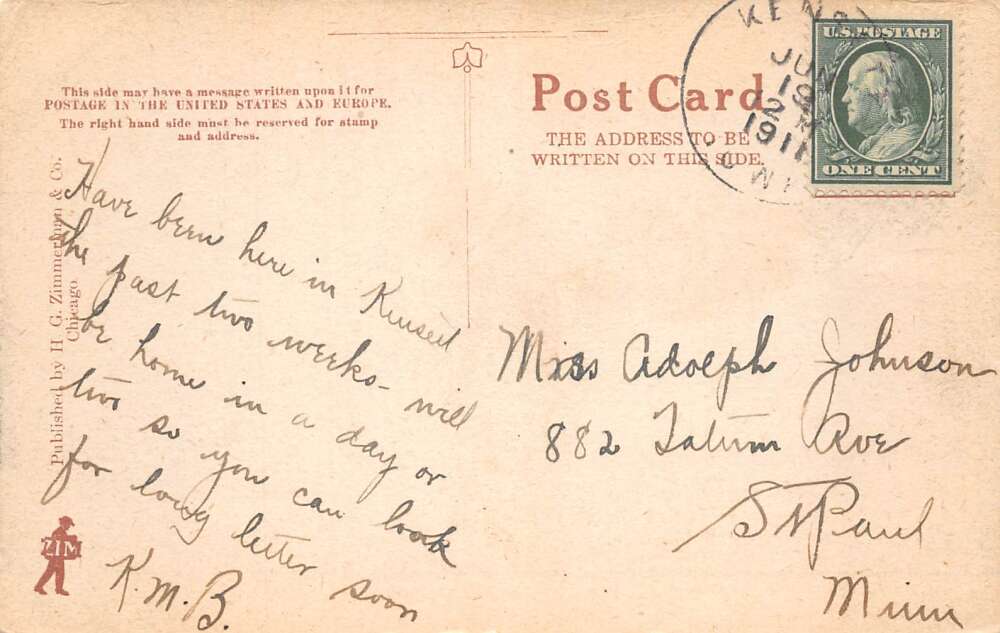 This side may have a message written upon it for
POSTAGE IN THE UNITED STATES AND EUROPE.
The right hand side must be reserved for stamp
and address.
Published by H. G. Zimmerman & Co.
Chicago.
ZIM
Have been here in
the past two weeks - will
be home in a day or
two so you can look
for long letter soon
K.M.B.
Post Card.
THE ADDRESS TO BE
WRITTEN ON THIS SIDE.
JUN
19
2 M
1911
U.S. POSTAGE
ONE CENT
Miss Adolph Johnson
882 Tatum Ave
St Paul
Minn